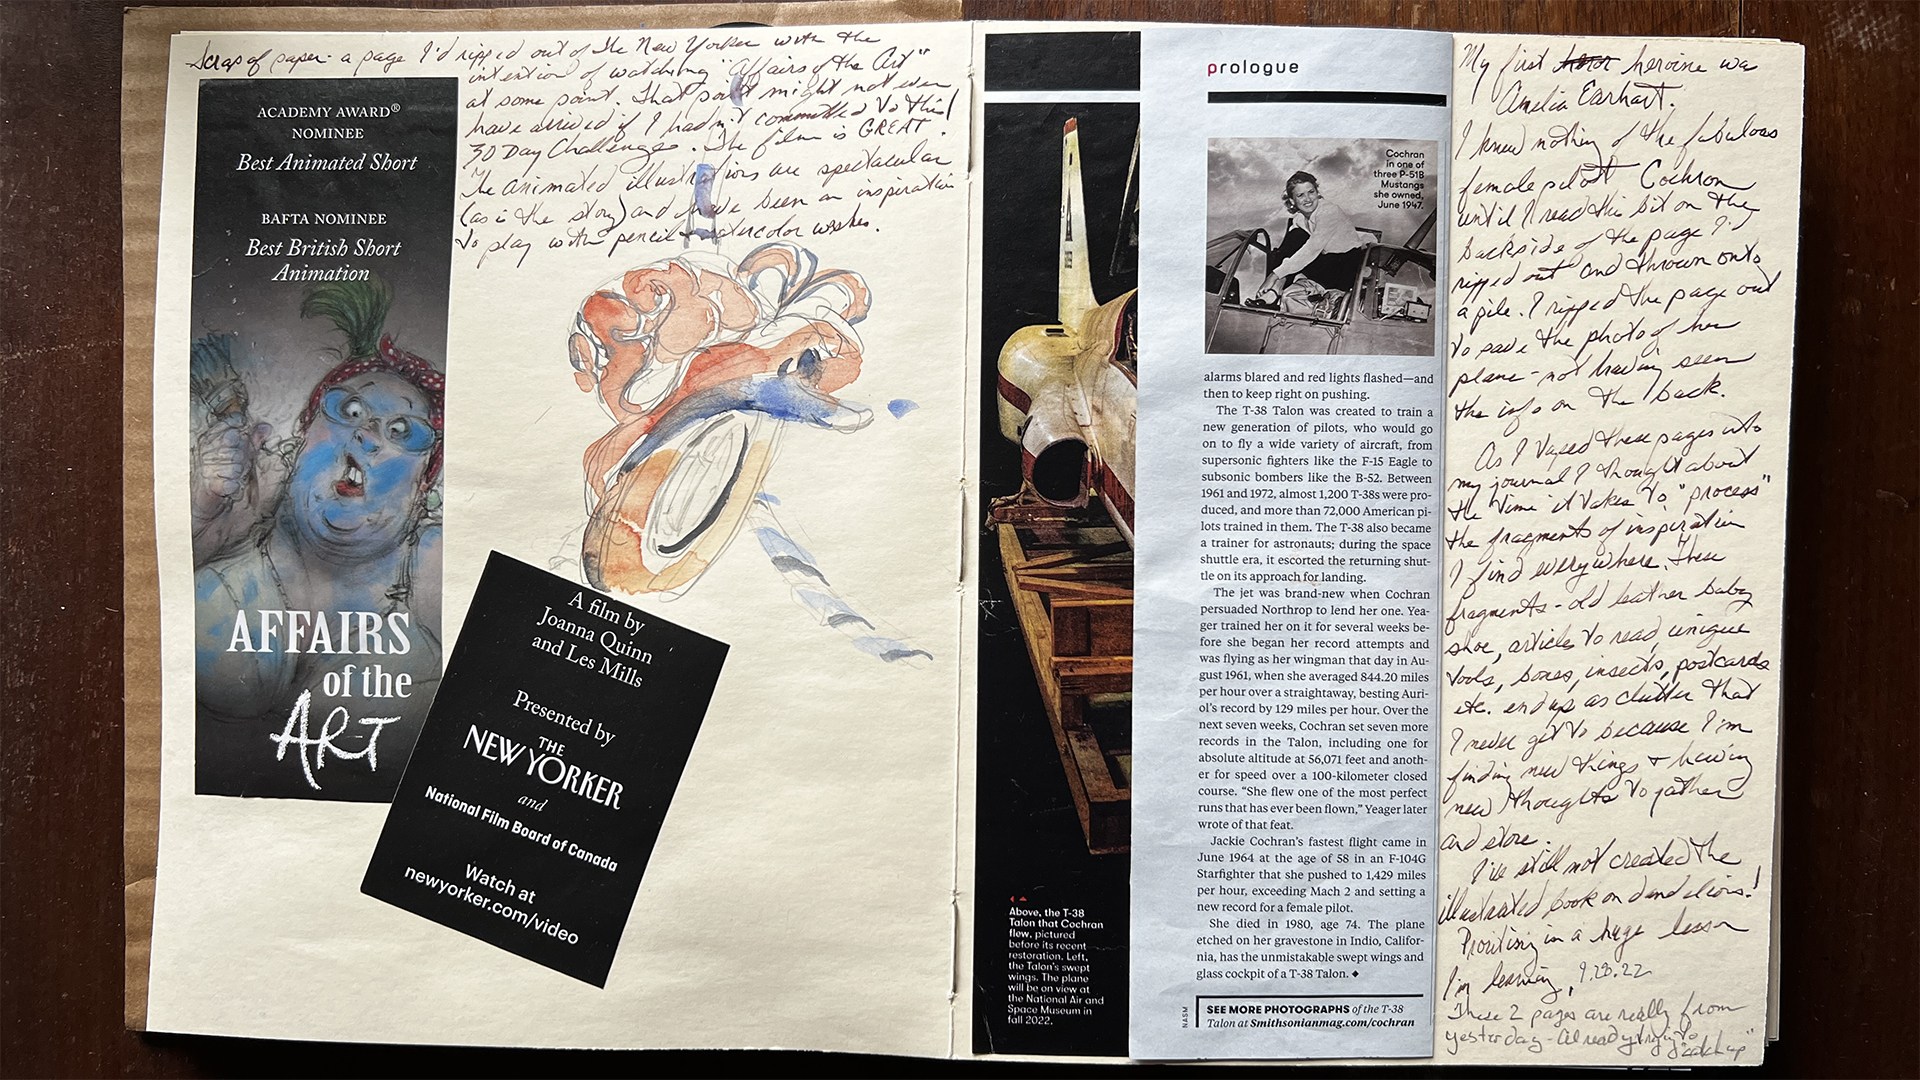 Scrap of paper - a page I'd ripped out of the New Yorker with the
intention of watching "Affairs of the Art"
at some point. That point might not even
have arrived if I hadn't committed to this
30 Day Challenge. The film is GREAT!
The animated illustrations are spectacular
(as is the story) and have been an inspiration
to play with pencil + watercolor washes.
ACADEMY AWARD®
NOMINEE
Best Animated Short
BAFTA NOMINEE
Best British Short
Animation
AFFAIRS
of the
ART
A film by
Joanna Quinn
and Les Mills
Presented by
THE
NEW YORKER
and
National Film Board of Canada
Watch at
newyorker.com/video
Above, the T-38
Talon that Cochran
flew, pictured
before its recent
restoration. Left,
the Talon's swept
wings. The plane
will be on view at
the National Air and
Space Museum in
fall 2022.
prologue
Cochran
in one of
three P-51B
Mustangs
she owned,
June 1947.
alarms blared and red lights flashed—and
then to keep right on pushing.
The T-38 Talon was created to train a
new generation of pilots, who would go
on to fly a wide variety of aircraft, from
supersonic fighters like the F-15 Eagle to
subsonic bombers like the B-52. Between
1961 and 1972, almost 1,200 T-38s were pro-
duced, and more than 72,000 American pi-
lots trained in them. The T-38 also became
a trainer for astronauts; during the space
shuttle era, it escorted the returning shut-
tle on its approach for landing.
The jet was brand-new when Cochran
persuaded Northrop to lend her one. Yea-
ger trained her on it for several weeks be-
fore she began her record attempts and
was flying as her wingman that day in Au-
gust 1961, when she averaged 844.20 miles
per hour over a straightaway, besting Auri-
ol's record by 129 miles per hour. Over the
next seven weeks, Cochran set seven more
records in the Talon, including one for
absolute altitude at 56,071 feet and anoth-
er for speed over a 100-kilometer closed
course. "She flew one of the most perfect
runs that has ever been flown," Yeager later
wrote of that feat.
Jackie Cochran's fastest flight came in
June 1964 at the age of 58 in an F-104G
Starfighter that she pushed to 1,429 miles
per hour, exceeding Mach 2 and setting a
new record for a female pilot.
She died in 1980, age 74. The plane
etched on her gravestone in Indio, Califor-
nia, has the unmistakable swept wings and
glass cockpit of a T-38 Talon. ◆
NASM
SEE MORE PHOTOGRAPHS of the T-38
Talon at Smithsonianmag.com/cochran
My first heroine was
Amelia Earhart.
I knew nothing of the fabulous
female pilot Cochron
until I read this bit on the
backside of the page I'd
ripped out and thrown onto
a pile. I ripped the page out
to save the photo of her
plane - not having seen
the info on the back.
As I taped these pages into
my journal I thought about
the time it takes to "process"
the fragments of inspiration
I find everywhere. These
fragments - old leather baby
shoe, articles to read, unique
tools, bones, insects, postcards
etc. end up as clutter that
I never get to because I'm
finding new things + having
new thoughts to gather
and store.
I've still not created the
illustrated book on dandelions!
in a huge lesson
I'm learning, 9.28.22
These 2 pages are really from
yesterday - Already trying to
"catch up"